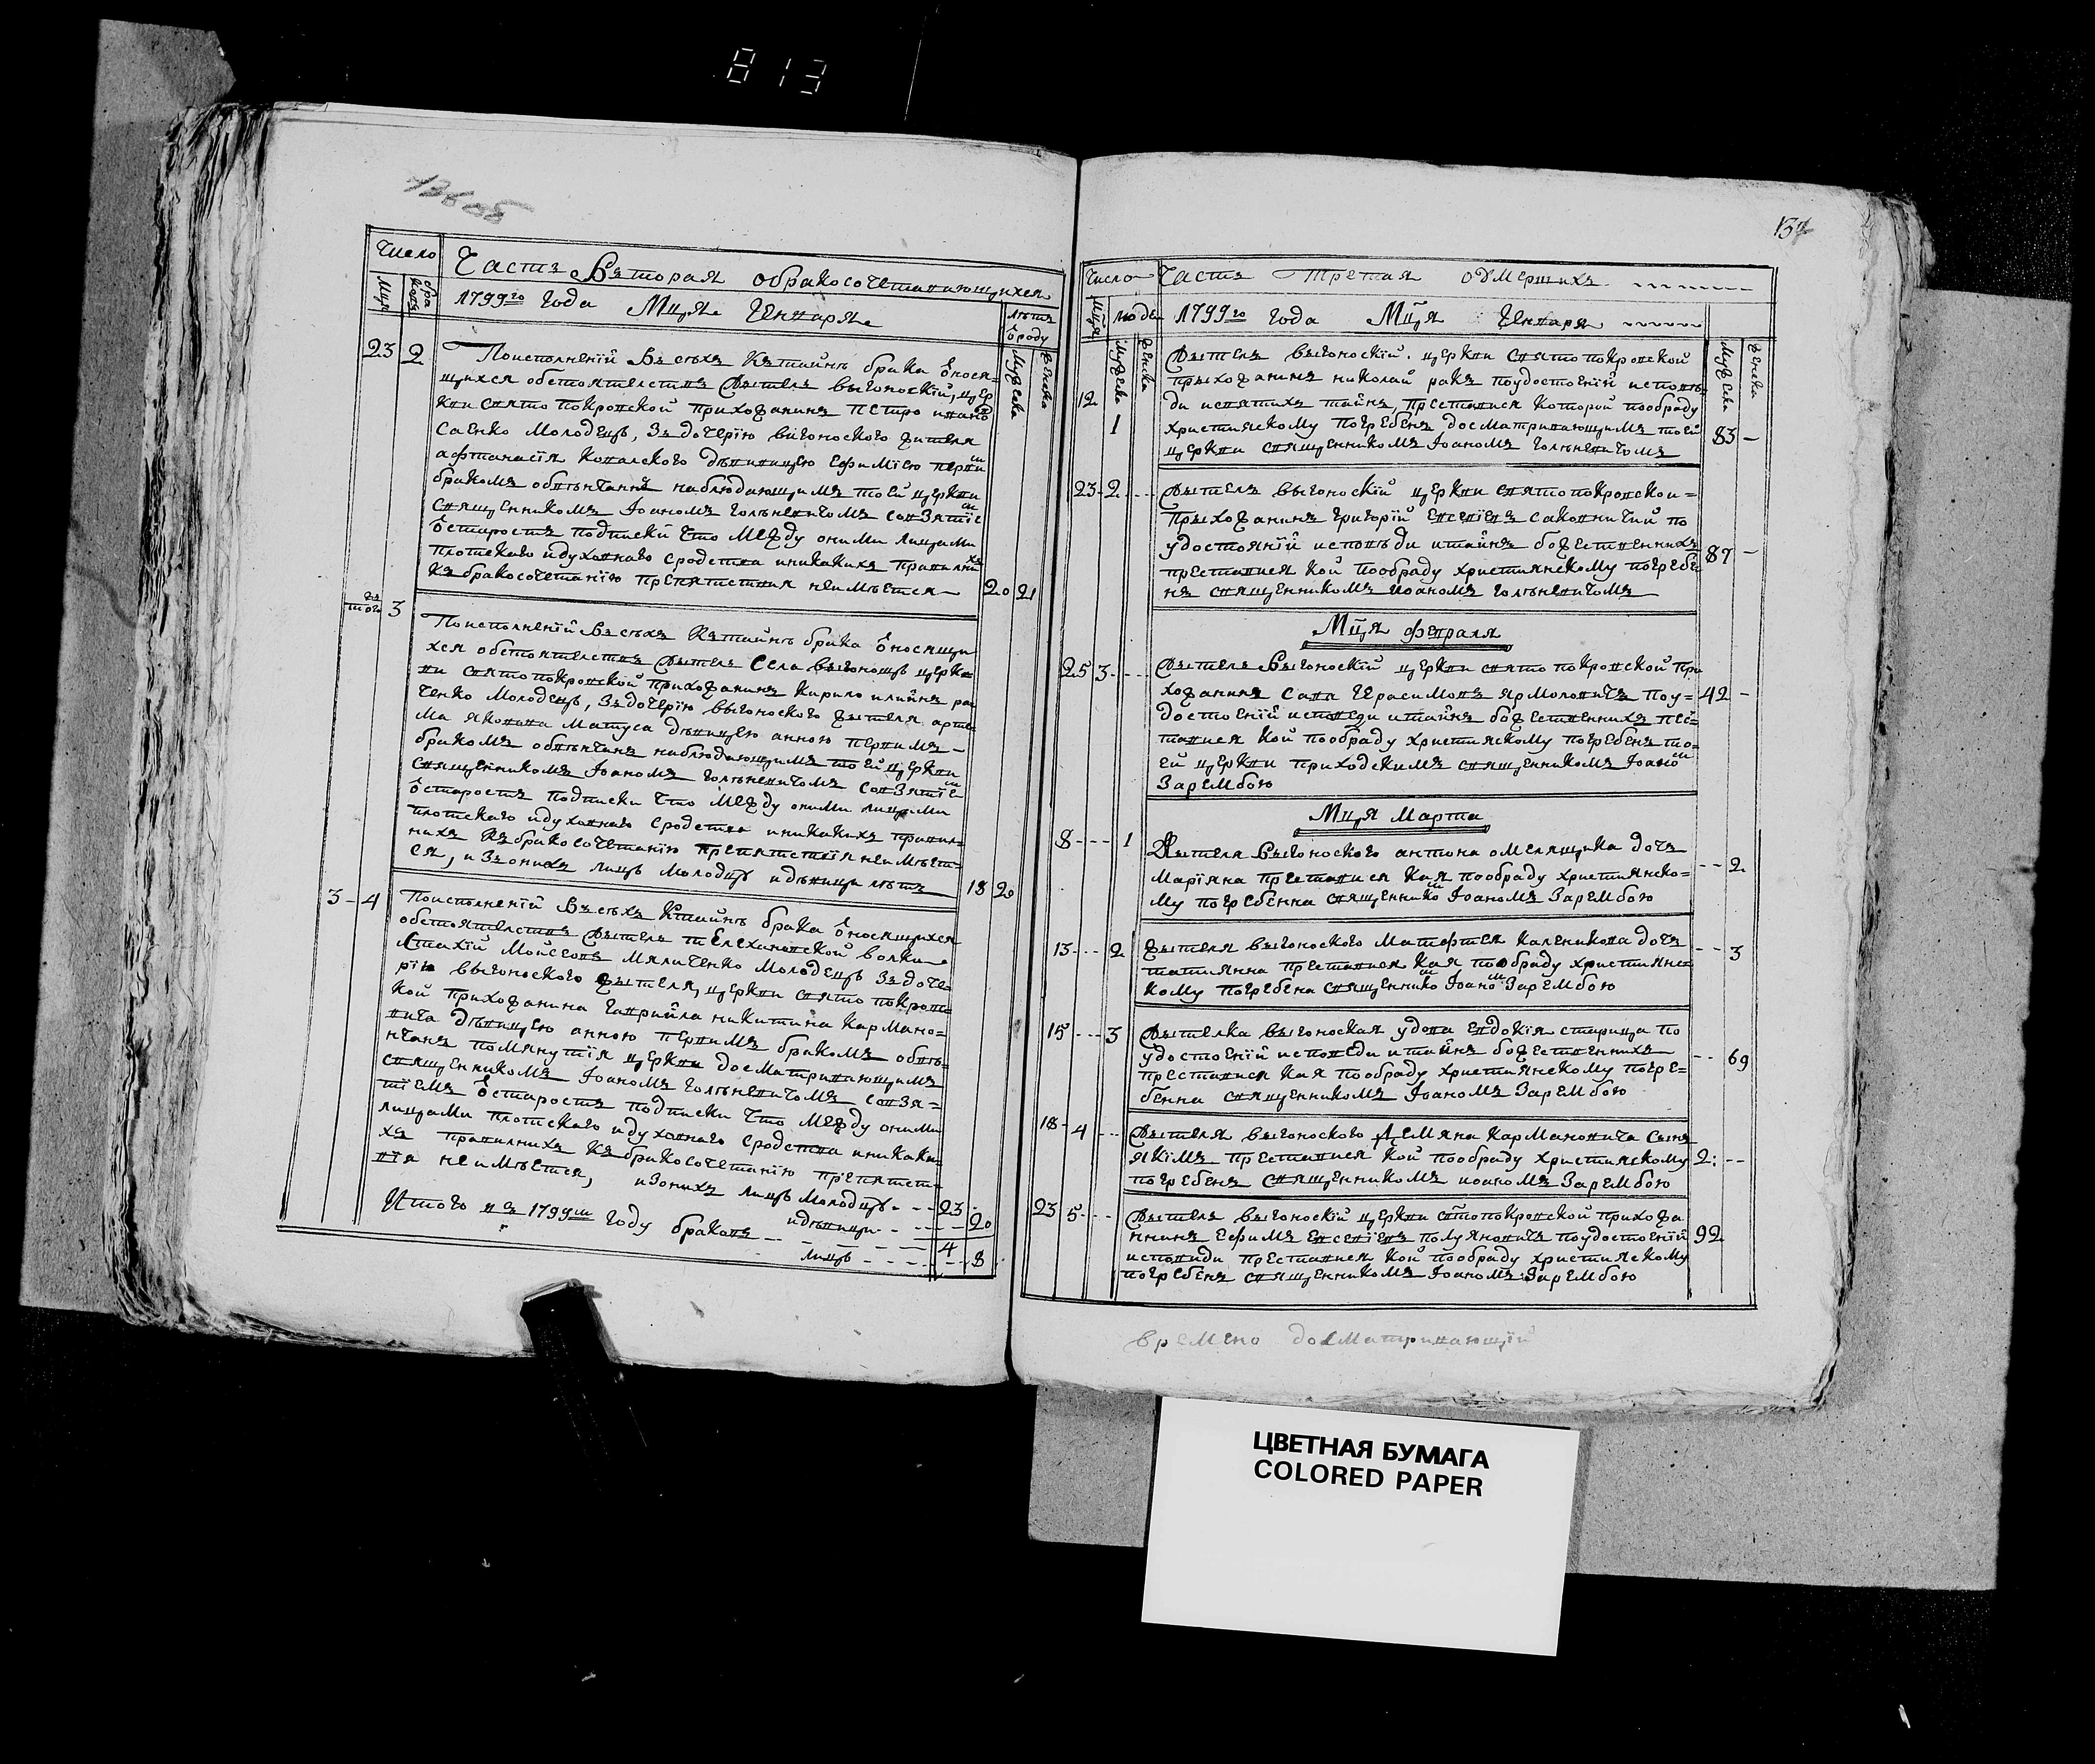 813
136 об
Число Часть Вторая обракосочетавающихся
Мця брако въ 1799го Года Мця Генваря лѣтъ ѿроду
Мужеска Женска
23 2 Поисполненій Всѣхъ Ктайнѣ брака ѿнося-
щихся обстоятелствъ Житель выгоноскій, цер
кви святопокровской прихожанинъ Петро ивановъ
Саенко Молодецъ, Здочерію выгоноского жителя
афтанасія Ковалского дѣвицею ефимїею первим
бракомъ обвѣнчанъ наблюдающимъ тоей церкви
священникомъ Іоаномъ Голѣневичомъ совзятїем
ѿстаростъ подписки что Между оними лицами
плотскаго идуховнаго сродства иникакихъ правилнихъ
кбракосочетанїю препятствия неимѣется 20 21
тогож 3 Поисполненій Всѣхъ Ктайнѣ брака ѿносящи
хся обстоятелствъ Житель Села выгонощъ церк
ви святопокровской прихожанинъ Кирило илїинъ ра
ченко Молодецъ, Здочерїю выгоноского жителя арте
ма яковина Матуса дѣвицею анною первимъ
бракомъ обвѣнчанъ наблюдающимъ тоей церкви
священникомъ Іоаномъ Голѣневичомъ совзятїем
ѿстаростъ подписки что Между оними лицами
плотскаго идуховнаго сродства иникакихъ правил-
нихъ Кбракосочетанїю препятствїя неимѣет-
ся, изонихъ лицъ Молодцу идѣвици лѣтъ 18 20
3 4 Поисполненїй Всѣхъ Ктайнѣ брака ѿносящихся
обстоятелствъ Житель телеханской волки
Стахїй Мойсеовъ Мяличенко Молодецъ Здоче
рїю выгоноского жителя, церкви святопокровс
кой прихожанина Гаврийла никитина Кармано-
вича дѣвицею анною первимъ бракомъ обвѣ-
нчанъ помянутїя церкви досматривающимъ
священникомъ Іоаномъ Голѣневичомъ совзя-
тїемъ ѿстаростъ подписки что Между оними
лицами плотскаго идуховнаго сродства иникаки-
хъ правилнихъ Кбракосочетанїю препятст-
вїя неимѣется, изонихъ лицъ Молодцу 23
идѣвици 20
Итого въ 1799м Году браковъ 4
лицъ 8
137
Число Часть Третая о умершихъ
Мця людей 1799го Года Мця Генваря
Мужеска Женска Мужеска Женска
12 1 Житель выгоноскїй церкви святопокровской
прыхожанинъ николай ракъ поудостоенїй исповѣ
ди исвятихъ тайнъ, преставися которой пообраду
християнскому погребенъ досматривающимъ тоей
церкви священникомъ Іоаномъ Голѣневичомъ 83 -
23 2 Житель выгоноскїй церкви святопокровской
Прыхожанинъ Григорїй Евсевїевъ саковничий по
удостоянїй исповѣди итайнъ божественнихъ
преставися кой пообраду християнскому погребе
нъ священникомъ иоаномъ Голѣневичомъ 87 -
Мця февраля
25 3 Житель Выгоноскїй церкви святопокровской при
хожанинъ Сава Герасимовъ ярмоловичъ поу-
достоенїй исповеди итайнъ божественнихъ прес-
тавися кой пообраду християнскому погребенъ то-
ей церкви приходскимъ священникомъ Іоаном
Зарембою 42 -
Мця Марта
8 1 Жителя Выгоноского антона омелящика дочъ
Марїяна преставися кая пообраду християнско-
му погребенна священником Іоаномъ Зарембою 2
13 2 Жителя выгоноского Матофтея каленикова дочъ
татиянна преставися кая пообраду християнс
кому погребена священником Іоаном Зарембою 3
15 3 Жителка выгоноская удова Евдокїя старица по
удостоенїй исповеди итайнъ божественнихъ
преставися кая пообраду християнскому погре-
бенна священникомъ Іоаномъ Зарембою 69
18 4 Жителя выгоноского Демяна Кармановича сынъ
якїмъ преставися кой пообраду християнскому
погребенъ священникомъ иоаномъ Зарембою 2
23 5 Житель выгоноскїй церкви стопокровской прихожа
нинъ Ефимъ Евсевїевъ полуяновичъ поудостоенїй
исповиди преставися кой пообраду християнскому
погребенъ священникомъ Іоаномъ Зарембою 92
времено досматривающїй
ЦВЕТНАЯ БУМАГА
COLORED PAPER